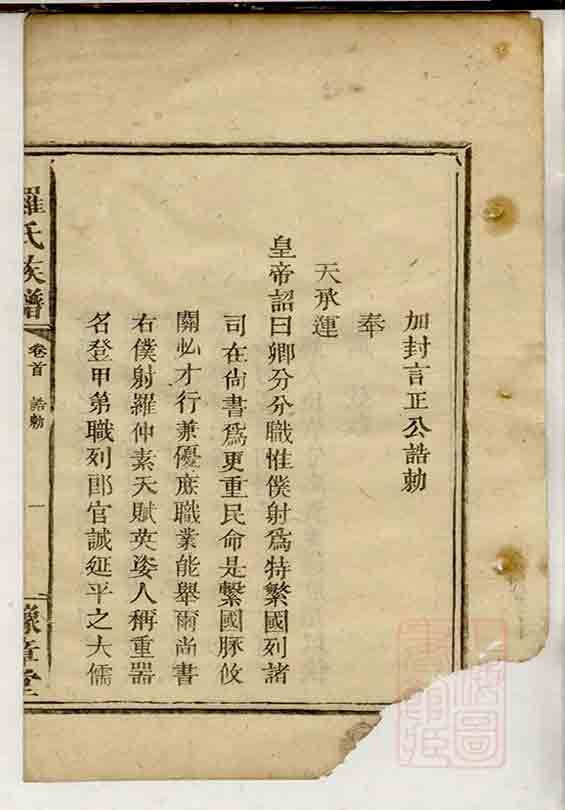 加封言正公誥勅
奉
天承運
皇帝詔曰卿分分職惟僕射爲特繁國列諸
司在尙書爲更重民命是繫國脉攸
關必才行兼優庶職業能舉爾尙書
右僕射羅仲素天賦英姿人稱重器
名登甲第職列郎官誠延平之大儒
羅氏族譜
卷首
誥勅
一
豫章堂